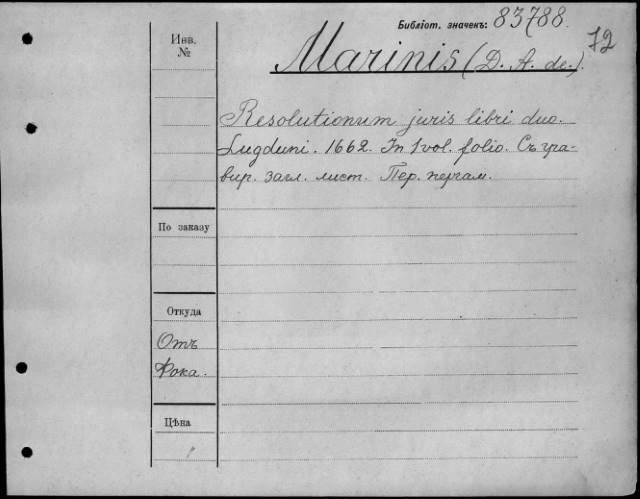 Библіот. значекъ: 83788.
72
Инв.
№
Marinis (D. A. de.).
Resolutionum juris libri duo.
Lugduni. 1662. In 1 vol. folio. Съ гра-
вир. загл. лист. Пер. пергам.
По заказу
Откуда
Отъ
Фока.
Цѣна